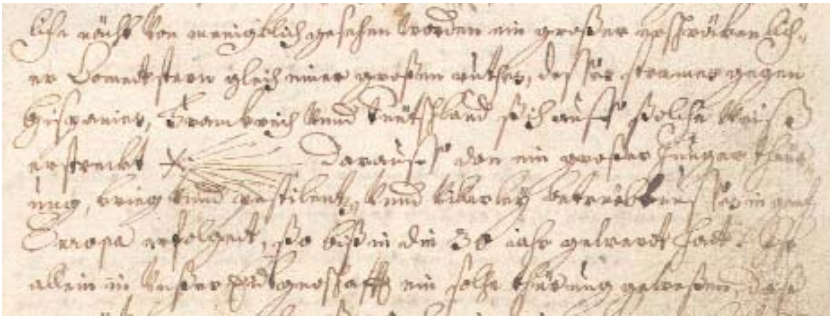 liche nächt von meniglich gesehen worden ein großer erschröckenlich-
er Comedtstern gleich einer großen ruthen, desser stramen gegen
Hispanien, Franckreich vnnd Teütschland sich auff solche weiß
erstreckt darauff dan ein großer hunger theür-
ung, krieg vnnd pestilentz, vnnd allerley betrübtnusser in gantz
Europa erfolgedt, so biß in die 30 iahr gewerdt hatt
allein in vnßer Eidtgnoschafft ein solche theürung geweßen, daß